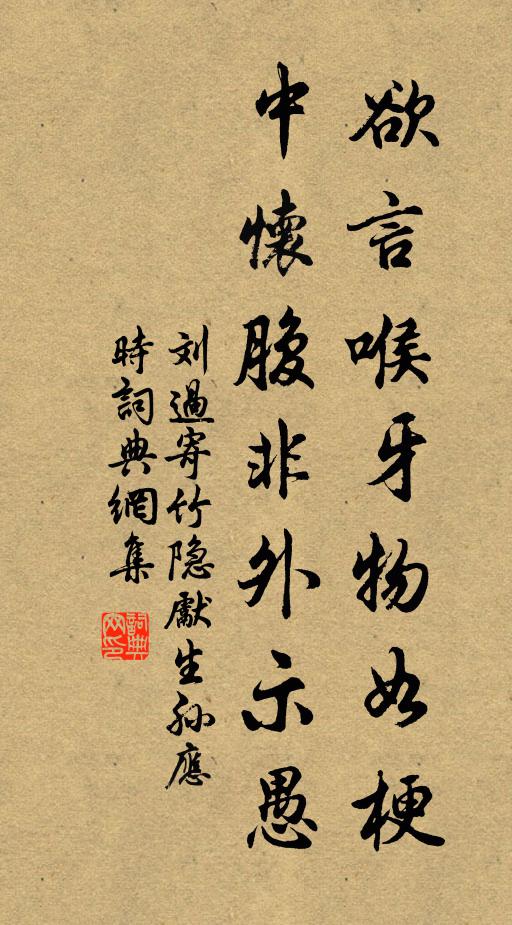 欲言喉牙物如梗
中懷腹非外示愚
刘過寄竹隐處生孙應
時詞典網集
詞典網印